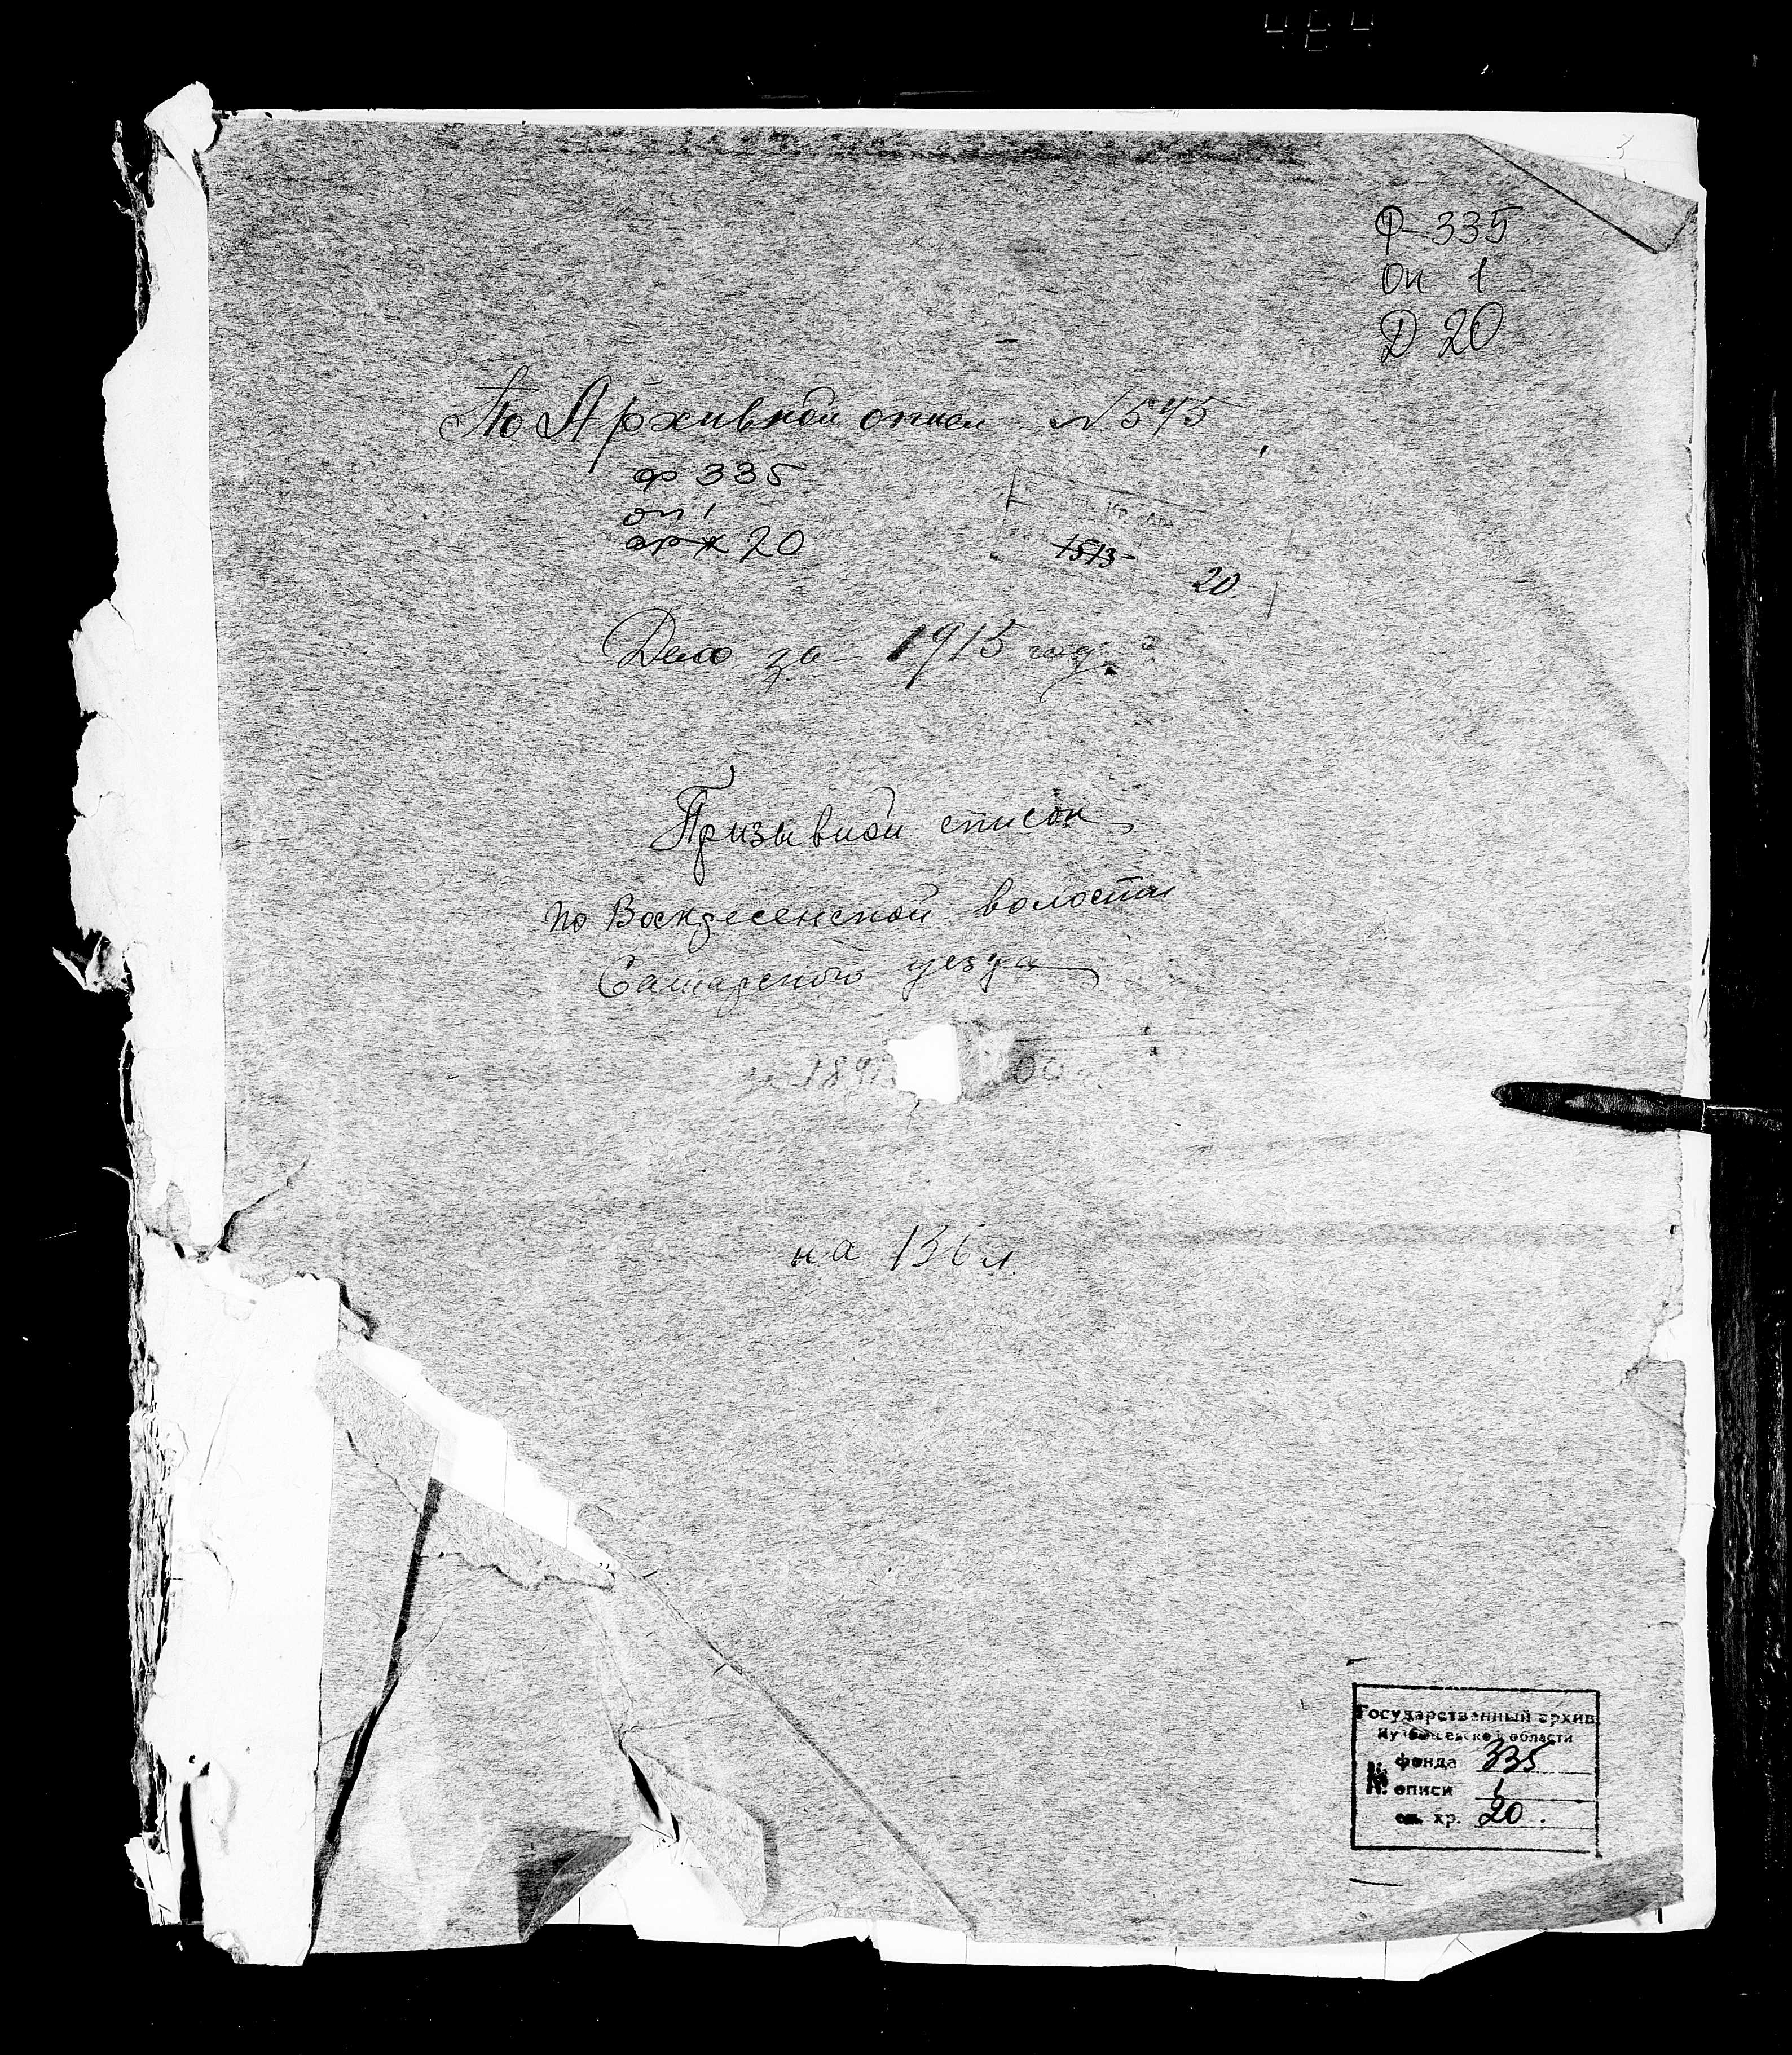 Ф-335
Оп 1
Д 20
По Архивной описи № 545
ф 335
оп 1
арх 20
1513
20
Дело за 1915 год.
Призывной список
по Воскресенской волости
Самарского уезда
на 136 л.
Государственный архив
Куйбышевской области
№ фонда 335
описи 1
ед. хр. 20.